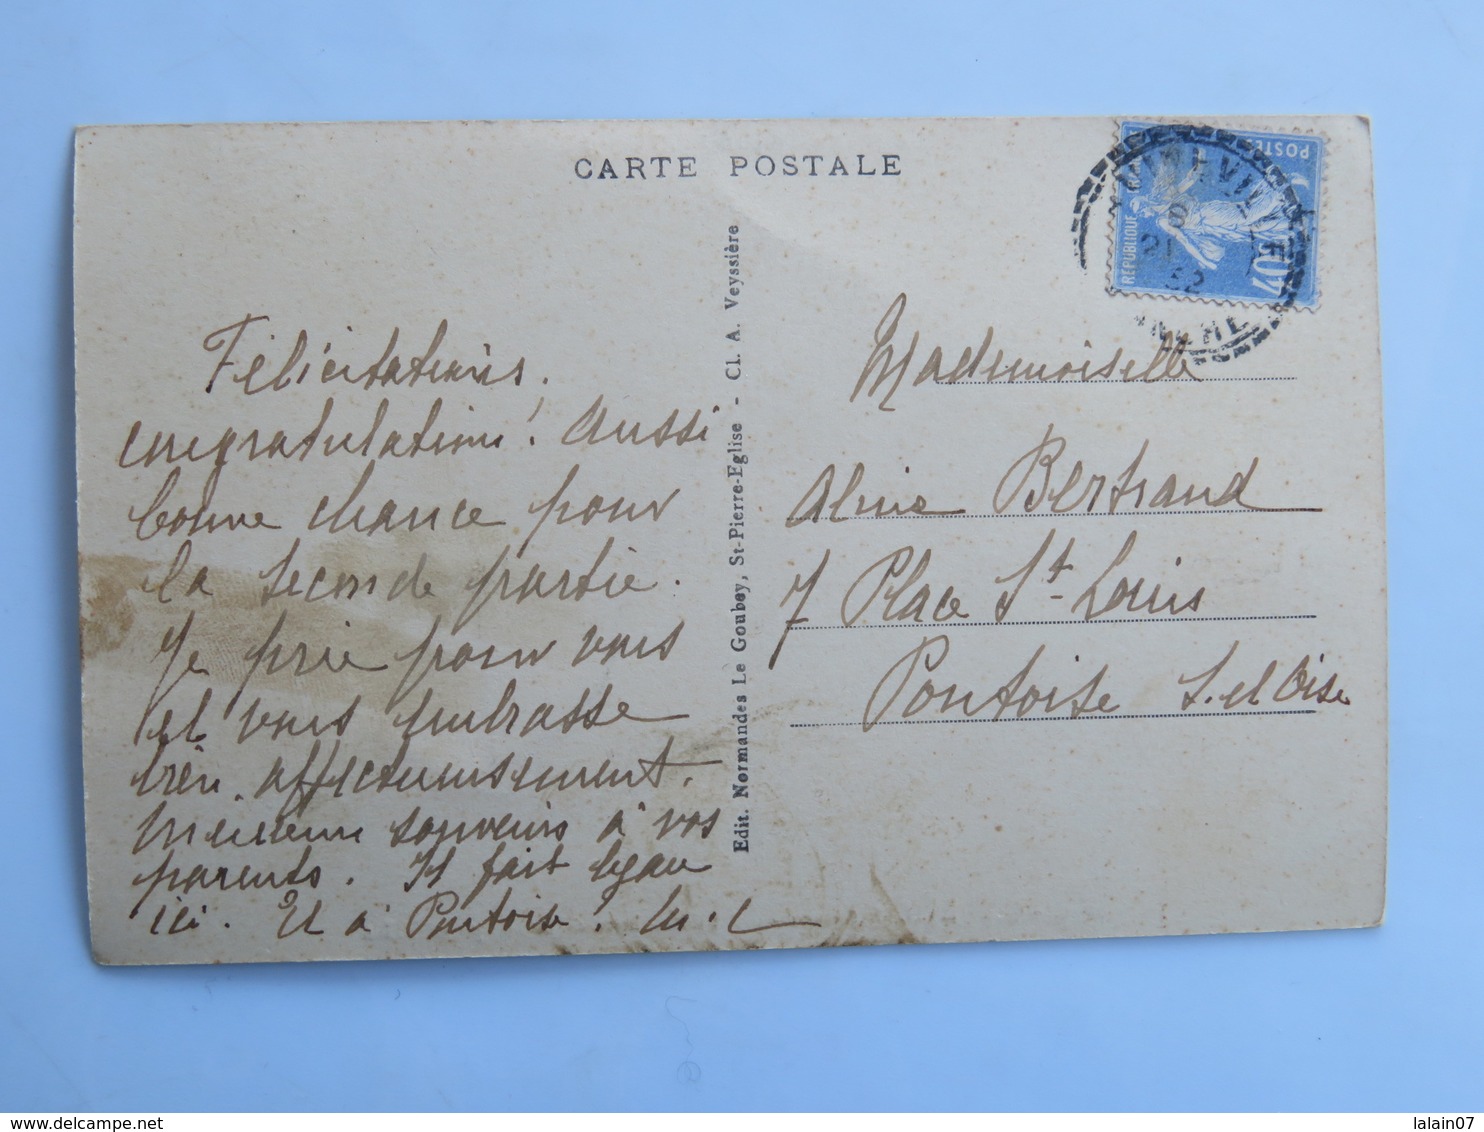 CARTE POSTALE
Félicitations.
congratulations! Aussi
bonne chance pour
la seconde partie.
Je prie pour vous
et vous embrasse
très affectueusement.
Meilleurs souvenirs à vos
parents. Il fait beau
ici. Et à Pontoise?
Edit. Normandes Le Goubey, St-Pierre-Eglise - Cl. A. Veyssière
POSTES
REPUBLIQUE
40
21
32
Mademoiselle
Aline Bertrand
7 Place St-Louis
Pontoise S. et Oise
delcampe.net
lalain07